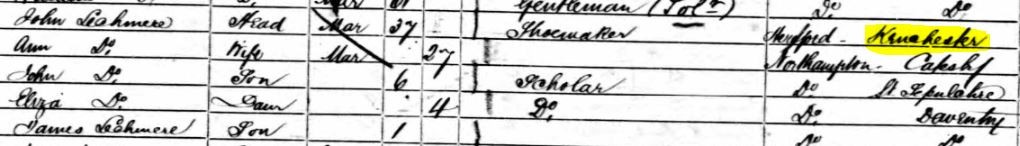 Gentleman (Solr) Do Do
John Leahmere Head Mar 37 Shoemaker Hereford - Kenchester
Ann Do Wife Mar 27 Northampton - Catesby
John Do Son 6 Scholar Do St Sepulchre
Eliza Do Daur 4 Do Do Daventry
James Leahmere Son 1 Do Do